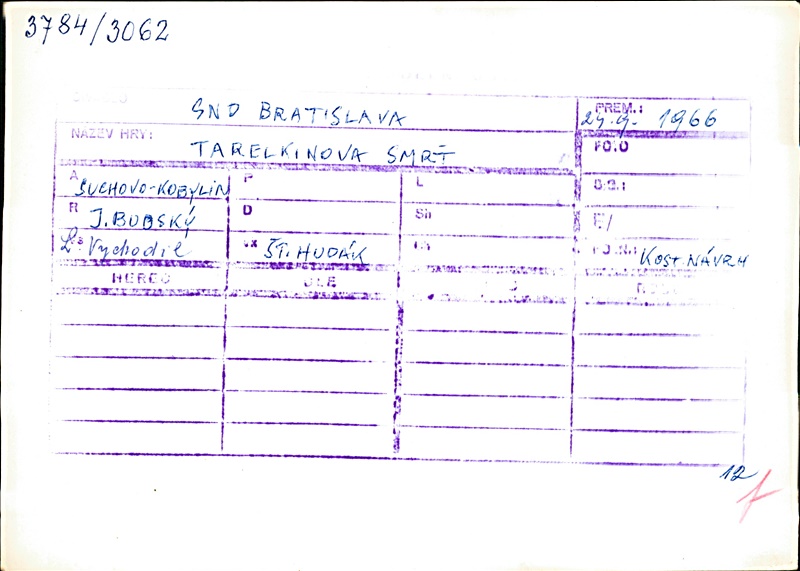 3784/3062
SND BRATISLAVA
PREM.: 1966
NÁZEV HRY: TARELKINOVA SMRŤ
FOTO
A SUCHOVO-KOBYLIN P L
R J. BUDSKÝ D Sh
Vychodil ŠT. HUDÁK KOST. NÁVRH
HEREC
12